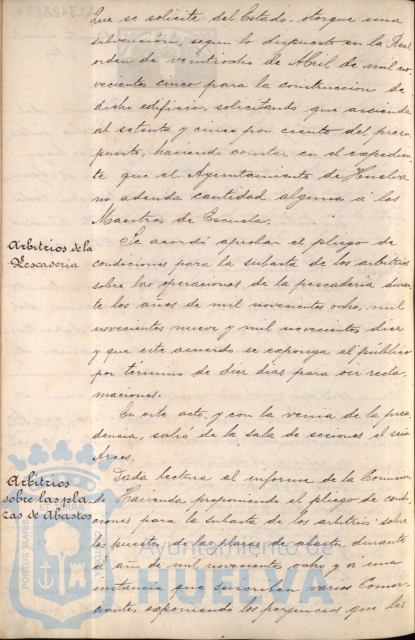 Que se solicite del Estado, otorgue una
subvención, según lo dispuesto en la Real
orden de veintiocho de Abril de mil no-
vecientos cinco para la construcción de
dicho edificio, solicitando que ascienda
al setenta y cinco por ciento del presu-
puesto, haciendo constar en el expedien-
te que el Ayuntamiento de Huelva
no adeuda cantidad alguna a los
Maestros de Escuela.
Arbitrios de la
Pescadería
Se acordó aprobar el pliego de
condiciones para la subasta de los arbitrios
sobre las operaciones de la pescadería duran-
te los años de mil novecientos ocho, mil
novecientos nueve y mil novecientos diez
y que este acuerdo se exponga al público
por término de diez días para oir recla-
maciones.
En este acto, y con la venia de la presi-
dencia, salió de la sala de sesiones el señor
Arcos.
Arbitrios
sobre las pla-
zas de Abastos
Dada lectura al informe de la Comisión
de Hacienda proponiendo el pliego de condi-
ciones para la subasta de los arbitrios sobre
los puestos de las plazas de abasto durante
el año de mil novecientos ocho y a una
instancia que suscriben varios Comer-
ciantes exponiendo los perjuicios que les
Ayuntamiento de
HUELVA